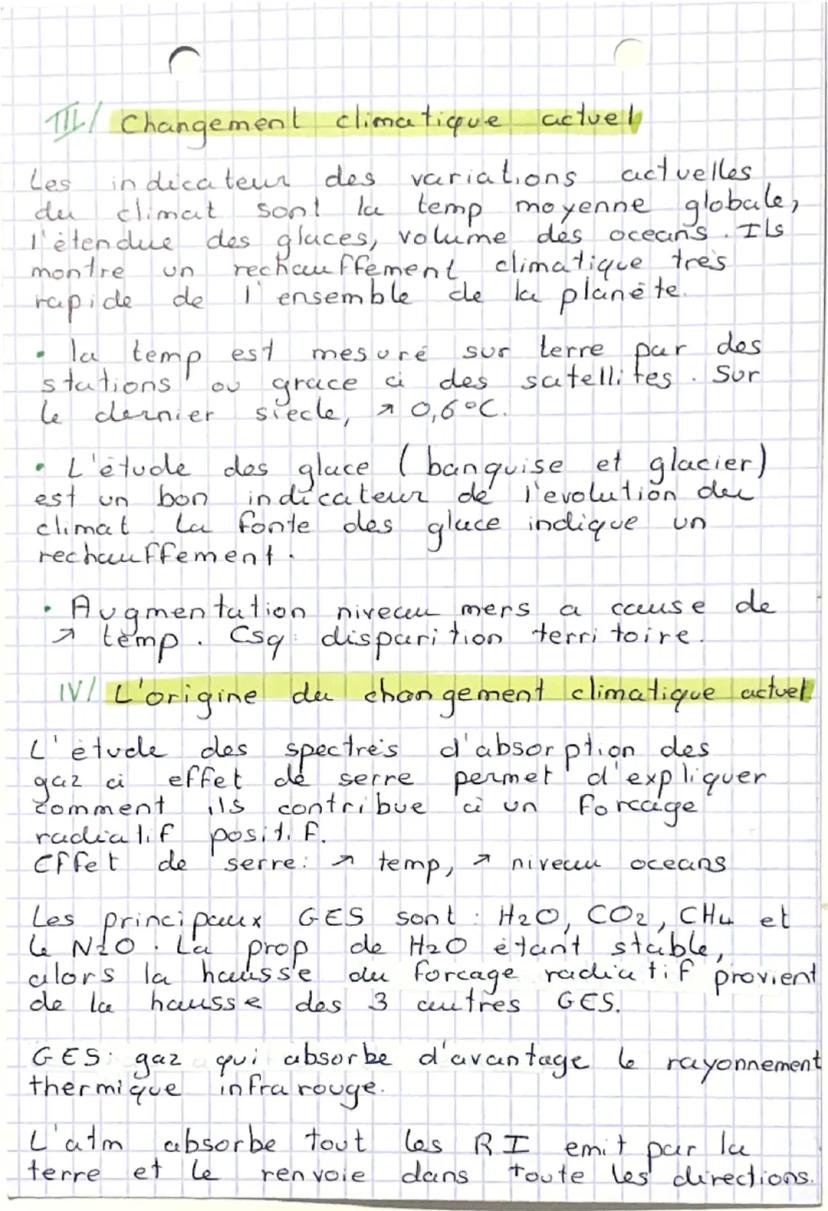 III/ Changement climatique actuel
Les indicateur des variations actuelles
du climat sont la temp moyenne globale,
l'étendue des glaces, volume des oceans. Ils
montre un rechauffement climatique très
rapide de l'ensemble de la planète.
• la temp est mesuré sur terre par des
stations ou grace à des satellites. Sur
le dernier siècle, ↗ 0,6°C.
• L'étude des glace (banquise et glacier)
est un bon indicateur de l'evolution du
climat. La fonte des glace indique un
rechauffement.
• Augmentation niveau mers a cause de
↗ temp. Csq: disparition territoire.
IV/ L'origine du changement climatique actuel
L'étude des spectres d'absorption des
gaz à effet de serre permet d'expliquer
comment ils contribue à un forcage
radiatif positif.
Effet de serre: ↗ temp, ↗ niveau oceans
Les principaux GES sont: H2O, CO2, CH4 et
le N2O. La prop de H2O étant stable,
alors la hausse du forcage radiatif provient
de la hausse des 3 autres GES.
GES: gaz qui absorbe d'avantage le rayonnement
thermique infrarouge.
L'atm absorbe tout les RI emit par la
terre et le renvoie dans toute les directions.